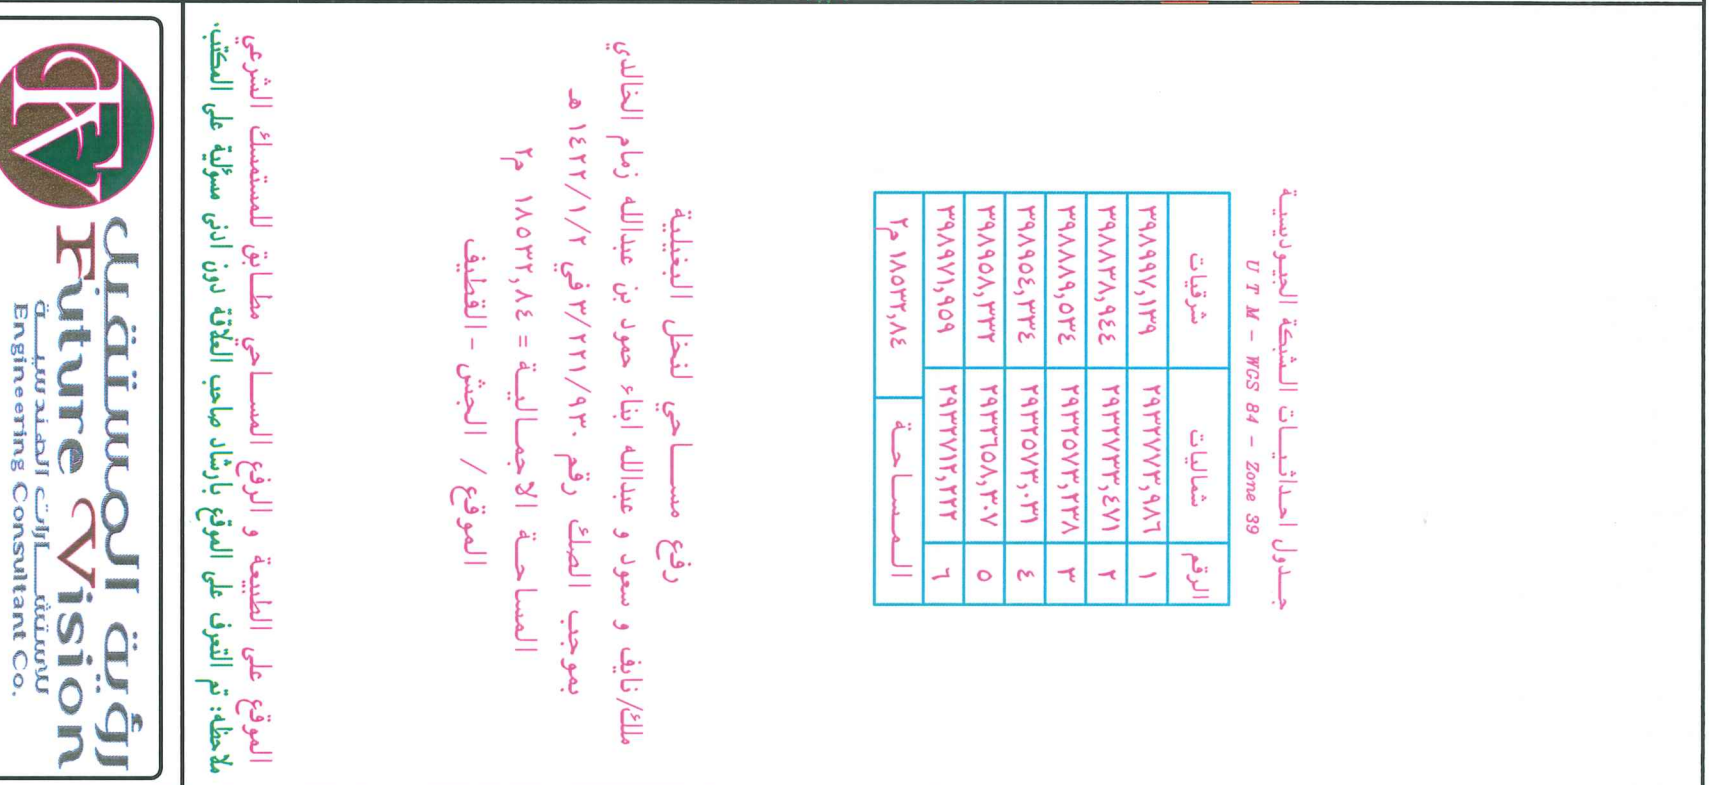 جــدول احداثيــات الشبكة الجيوديسية
U T M - WGS 84 - Zone 39
الرقم شماليات شرقيات
١ ٢٩٣٢٧٧٣,٩٨٦ ٣٩٨٩٩٧,١٣٩
٢ ٢٩٣٢٧٣٣,٤٧١ ٣٩٨٨٣٨,٩٤٤
٣ ٢٩٣٢٥٧٣,٢٣٨ ٣٩٨٨٨٩,٥٣٤
٤ ٢٩٣٢٥٧٣,٠٣١ ٣٩٨٩٥٤,٣٣٤
٥ ٢٩٣٢٦٥٨,٣٠٧ ٣٩٨٩٥٨,٣٣٢
٦ ٢٩٣٢٧١٢,٢٢٢ ٣٩٨٩٧١,٩٥٩
المــســاحــة ١٨٥٣٢,٨٤ م٢
رفع مســـاحي لنخل البغيلية
ملك/نايف و سعود و عبدالله ابناء حمود بن عبدالله زمام الخالدي
بموجب الصك رقم ٣/٢٢١/٩٣٠ في ١٤٢٢/١/٢ هـ
المساحــة الاجمــاليــة = ١٨٥٣٢,٨٤ م٢
الموقع / الجش - القطيف
الموقع على الطبيعة و الرفع المســاحي مطــابق للمستمسك الشرعي
ملاحظه: تم التعرف على الموقع بارشاد صاحب العلاقة دون ادنى مسؤلية على المكتب.
رؤية المستقبل
Future Vision
للاستشــارات الهندسيــة
Engineering Consultant Co.
FV